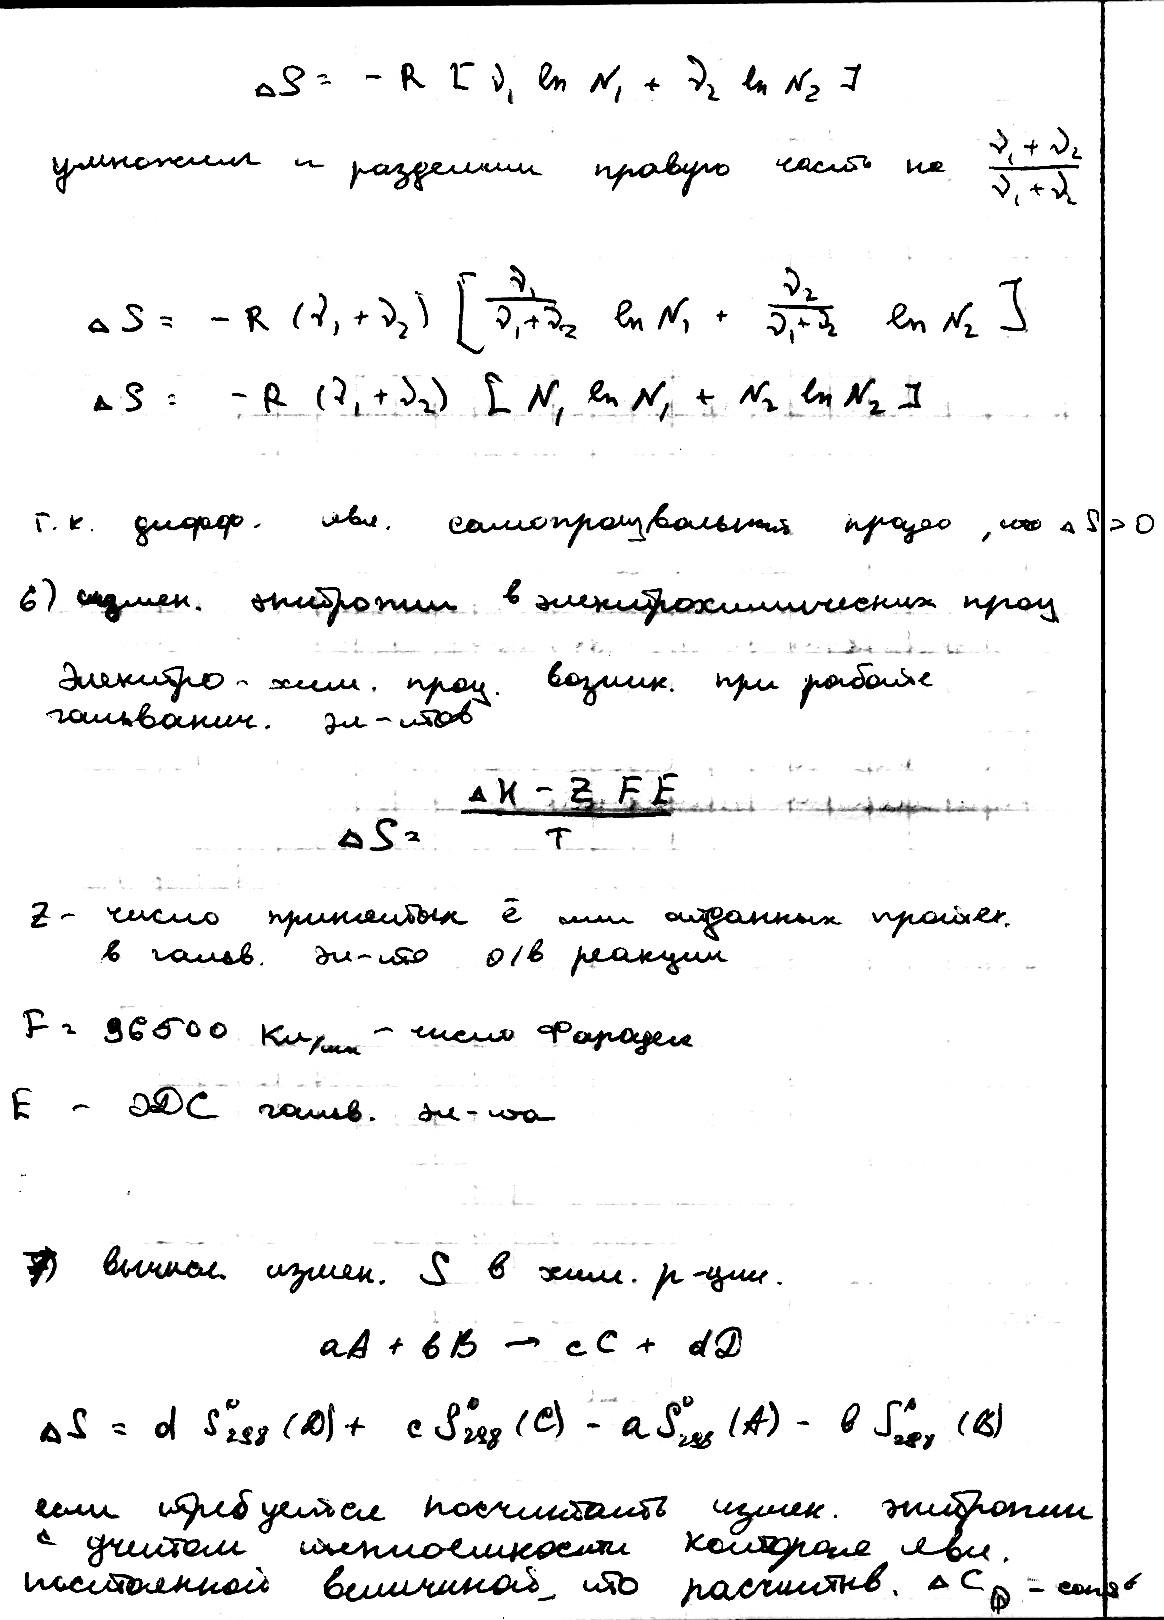 ΔS = - R [ ν₁ ln N₁ + ν₂ ln N₂ ]
умножим и разделим правую часть на (ν₁ + ν₂)/(ν₁ + ν₂)
ΔS = - R (ν₁ + ν₂) [ ν₁/(ν₁+ν₂) ln N₁ + ν₂/(ν₁+ν₂) ln N₂ ]
ΔS = - R (ν₁ + ν₂) [ N₁ ln N₁ + N₂ ln N₂ ]
т.к. дифф. явл. самопроизвольный , то ΔS > 0
6) измен. энтропии в электрохимических проц
Электро-хим. проц. возник. при работе
гальванич. эл-тов
ΔS = (ΔH - Z F E)/T
Z - число принятых ē или отданных протек.
в гальв. эл-те о/в реакции
F = 96500 Кл/ - число Фарадея
E - ЭДС гальв. эл-та
7) вычисл. измен. S в хим. р-ции.
aA + bB → cC + dD
ΔS = d S⁰₂₉₈ (D) + c S⁰₂₉₈ (C) - a S⁰₂₉₈ (A) - b S⁰₂₉₈ (B)
если требуется посчитать измен. энтропии
с учётом теплоёмкости которая явл.
постоянной величиной, то расчитыв. ΔCp = const